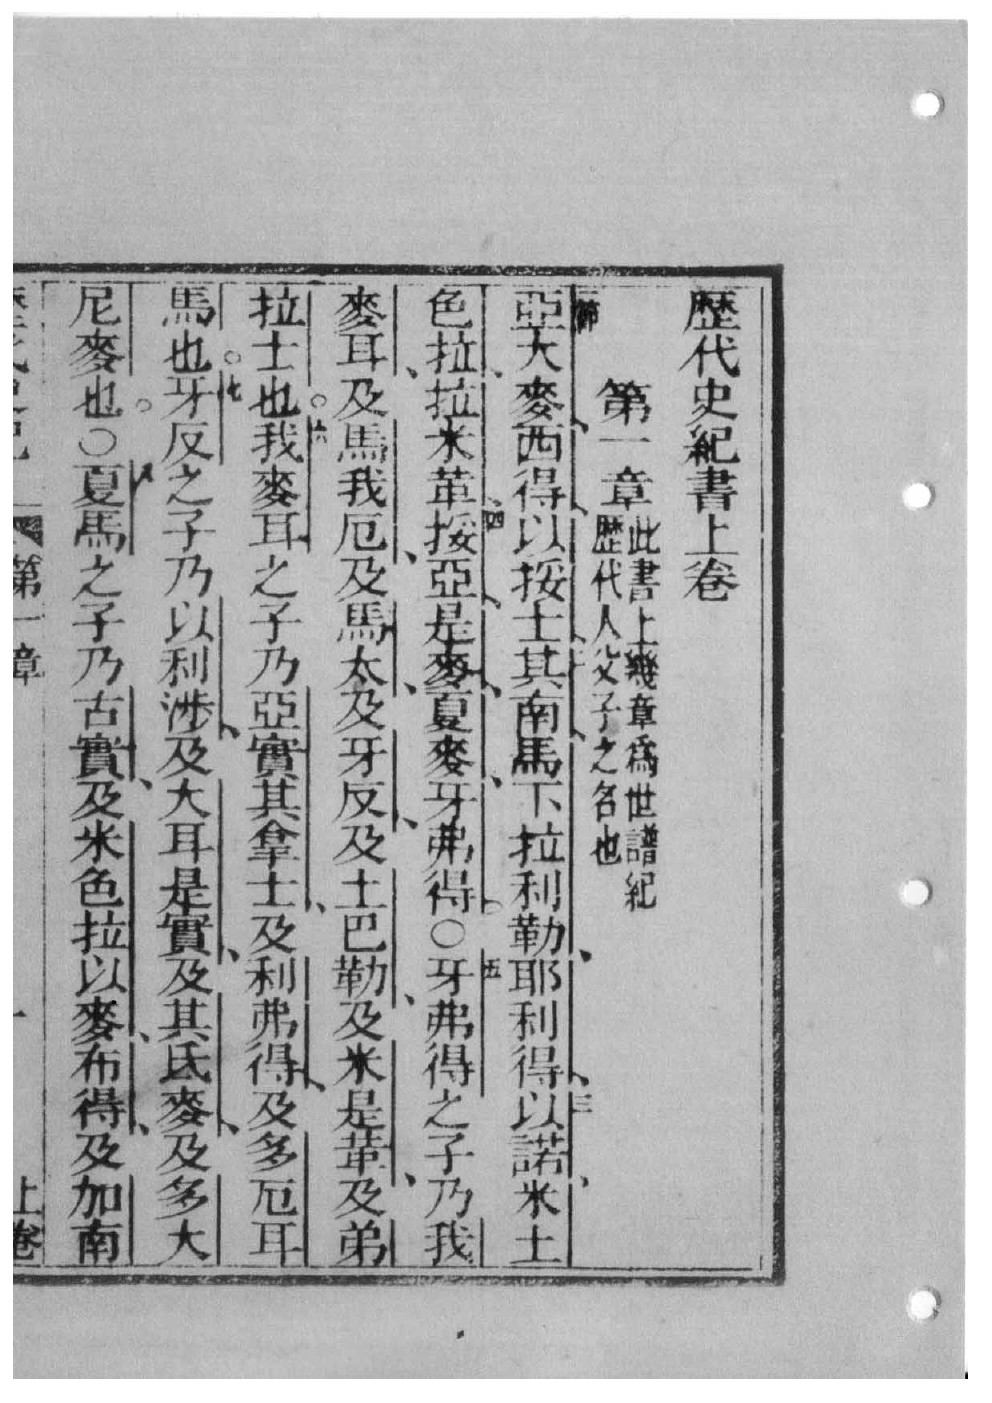 歷代史紀書上卷
第一章 此書上幾章爲世譜紀
歷代人父子之名也
一節亞大麥、西得、以挼士、二其南、馬下拉利勒、耶利得、三以諾、米土
色拉、拉米革、四挼亞、是麥、夏麥、牙弗得。〇五牙弗得之子乃我
麥耳、及馬我厄、及馬太、及牙反、及土巴勒、及米是革、及弟
拉士也。六我麥耳之子乃亞實其拿士、及利弗得、及多厄耳
馬也。七牙反之子乃以利涉、及大耳是實、及其氏麥、及多大
尼麥也。〇八夏馬之子乃古實、及米色拉以麥、布得、及加南
歷代史紀 第一章 一 上卷